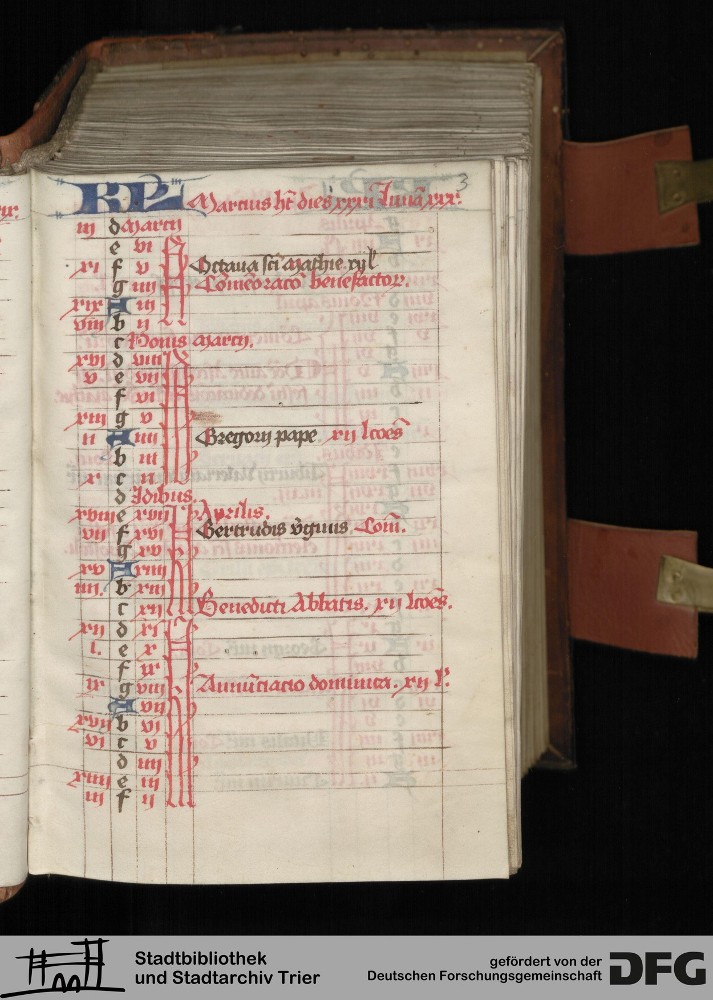 3
KL Marcius hȝ dies xxxi Luna xxx.
iii d Marcij
e vi
xi f v Octaua sci Mathie. xij l
g iiii Comeoraco benefactor.
xix A iii
viii b ii
c Nonis Marcij.
xvi d viii
v e vii
f vi
xiii g v
ii A iiii Gregorij pape xij lcoes
b iii
x c ii
d Idibus.
xviii e xvii Aprilis.
vii f xvi Gertrudis vginis Com.
g xv
xv A xiiii
iiii b xiii
c xii Benedicti Abbatis. xij lcoes.
xii d xi
i. e x
f ix
ix g viii Annuciacio dominica. xij l.
A vii
xvii b vi
vi c v
d iiii
xiiii e iii
iii f ii
Stadtbibliothek
und Stadtarchiv Trier
gefördert von der
Deutschen Forschungsgemeinschaft
DFG